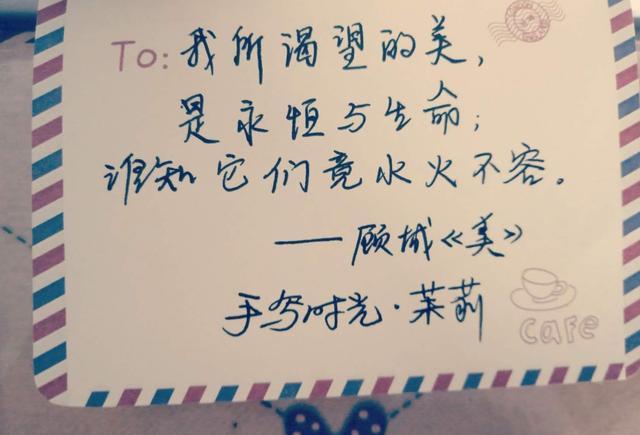 To: 我所渴望的美，
是永恒与生命；
谁知它们竟水火不容。
——顾城《美》
手写时光·茉莉
cafe